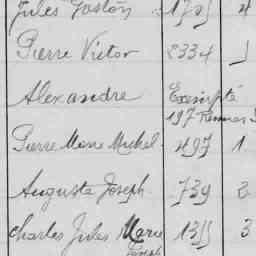 Jules Gaston 4
Pierre Victor 2334
Alexandre Exempté
197 Rennes
Pierre Marie Michel 497 1
Auguste Joseph 739 2
Charles Jules Marie 3
Joseph